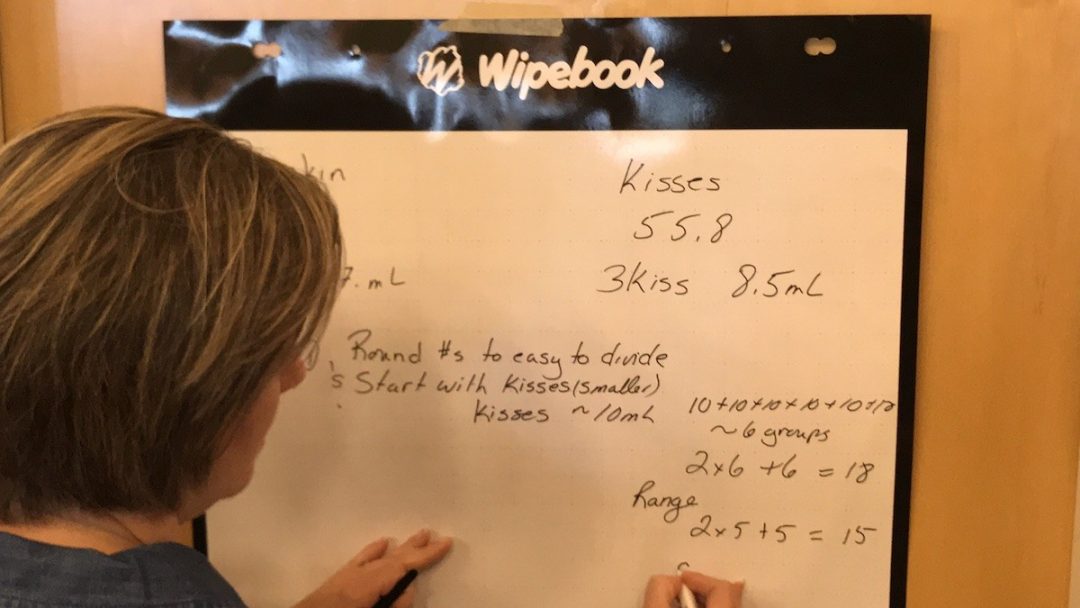 Wipebook
Kisses
55.8
3Kiss 8.5mL
7. mL
Round #s to easy to divide
's Start with Kisses (smaller)
Kisses ~ 10mL
10+10+10+10+10+10
~6 groups
2x6 +6 = 18
Range
2x5+5 = 15